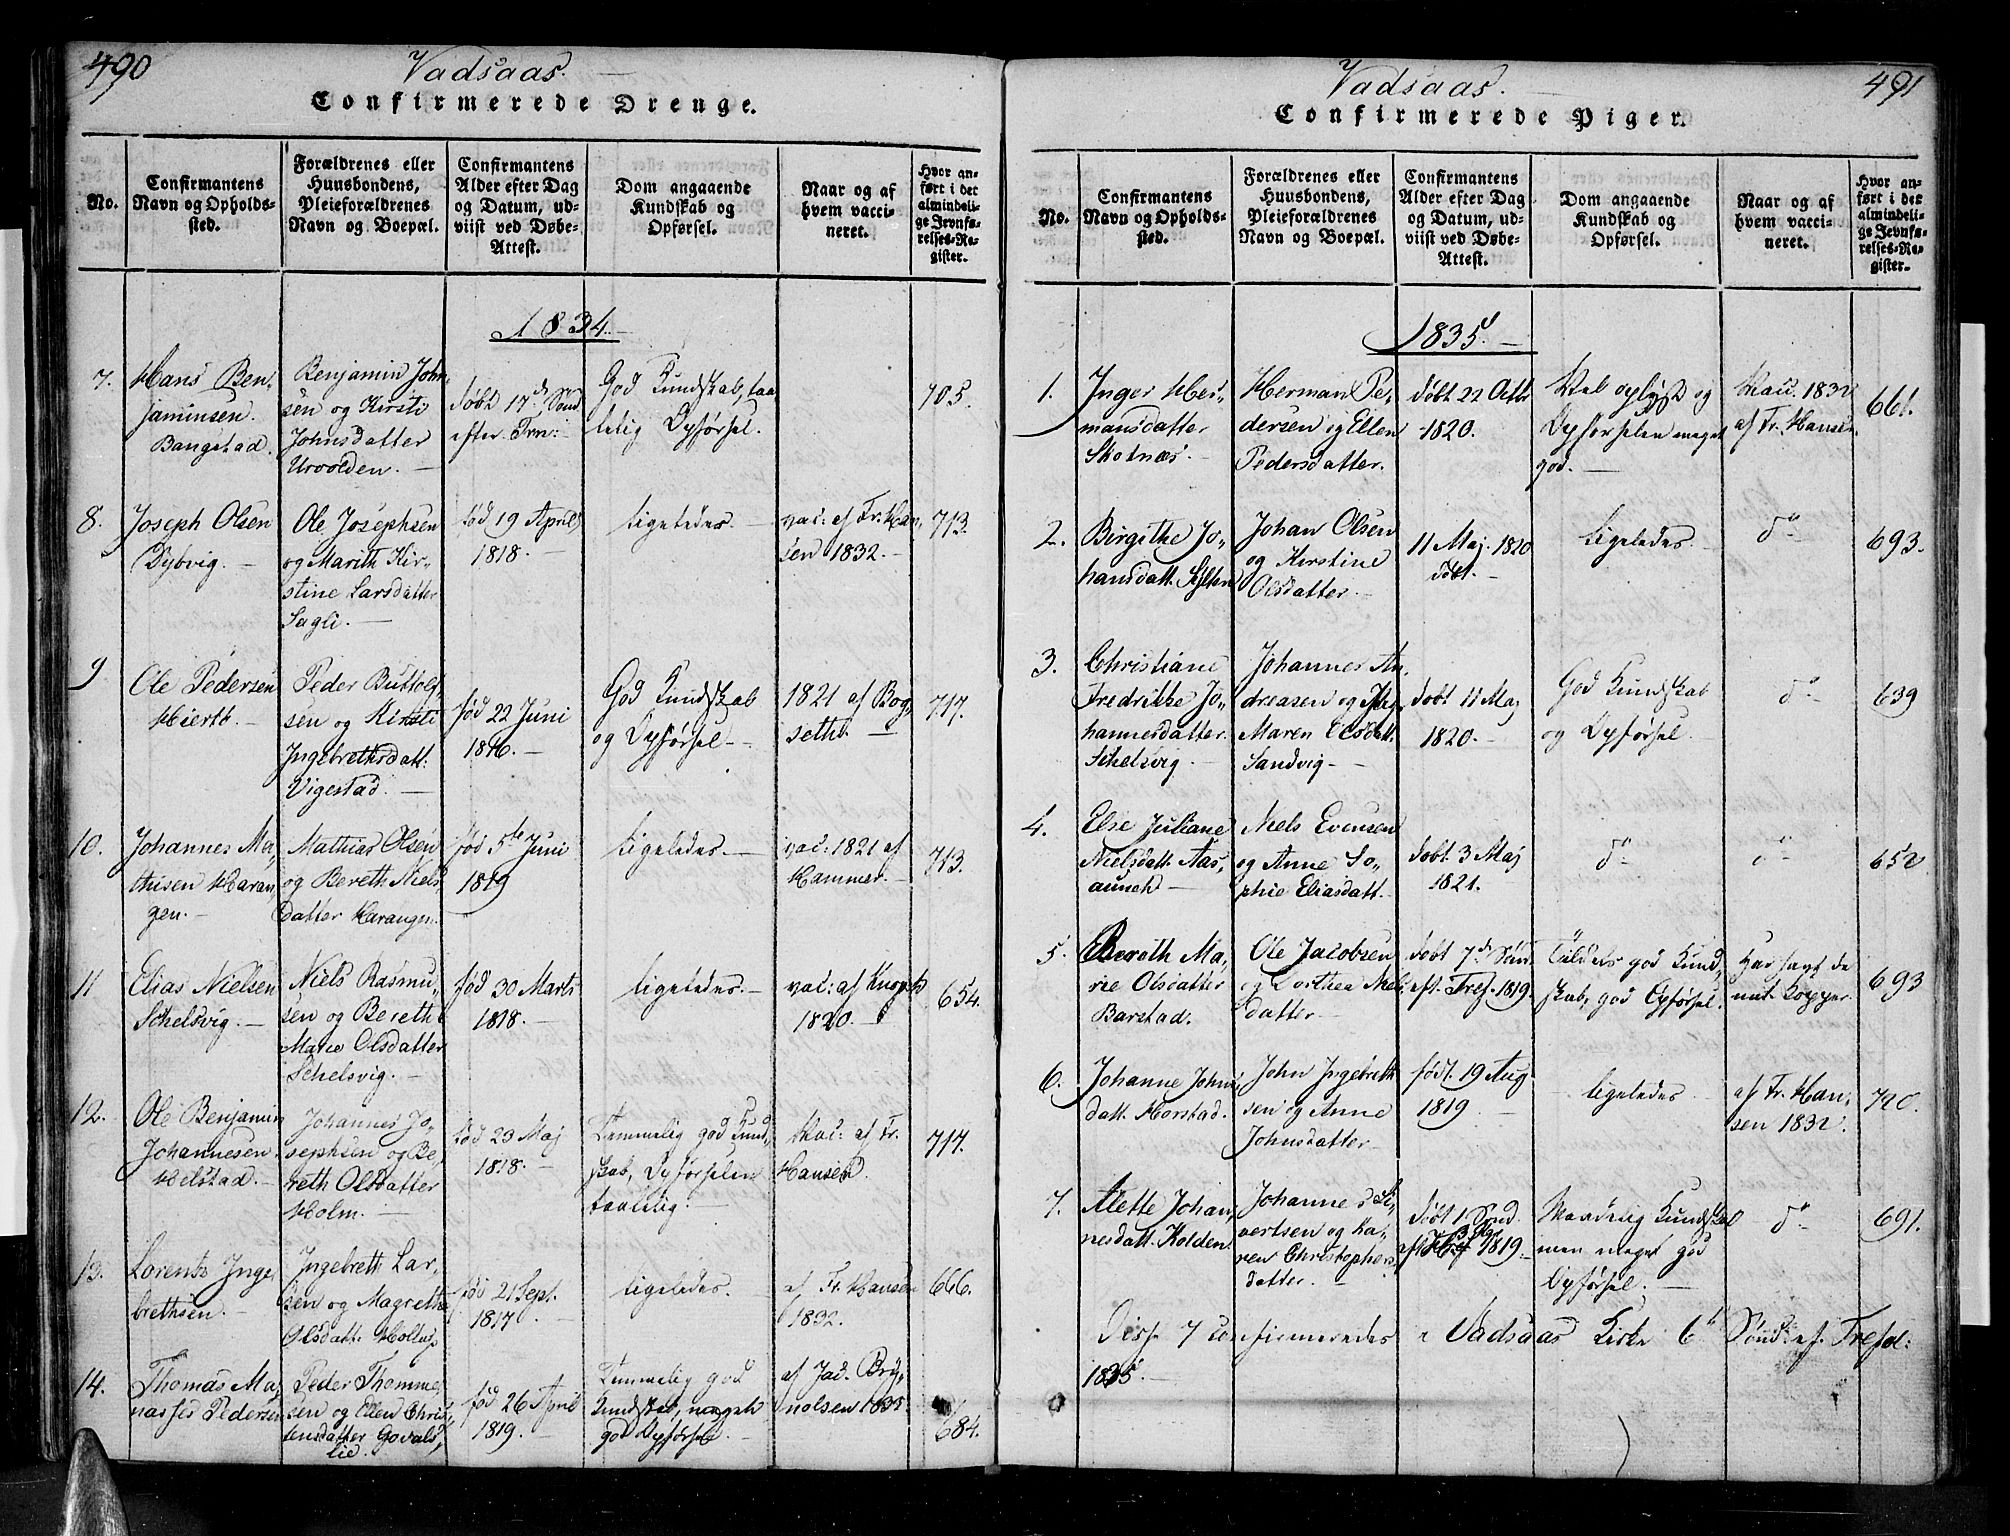 490
Vadsaas.
Confirmerede Drenge.
No.
Confirmantens
Navn og Opholds-
sted.
Forældrenes eller
Huusbondens,
Pleieforældrenes
Navn og Boepæl.
Confirmantens
Alder efter Dag
og Datum, ud-
viist ved Døbe-
Attest.
Dom angaaende
Kundskab og
Opførsel.
Naar og af
hvem vacci-
neret.
Hvor an-
ført i det
almindeli-
ge Jevnfø-
relses-Re-
gister.
1834.
7.
Hans Ben-
jaminsen
Bangstad.
Benjamin John-
sen og Kirsti
Johnsdatter
Urvolden.
døbt 17de Sønd
efter Trin:
God Kundskab, taa-
lelig Opførsel.
705.
8.
Joseph Olsen
Dybvig.
Ole Josephsen
og Marith Kir-
stine Larsdatter
Sagli.
fød 19 April
1818.
ligeledes.
vac: af Fr. Han-
sen 1832.
713.
9
Ole Pedersen
Hierth.
Peder Buttolf-
sen og Kirsti
Ingebrethsdatt:
Vigestad.
fød 22 Juni
1816.
God Kundskab
og Opførsel
1821 af Bog-
seth.
717.
10.
Johannes Ma-
thisen Haran-
gen.
Mathias Olsen
og Bereth Niels
datter Harangen.
fød 5te Juni
1819
ligeledes.
vac: 1821 af
Hammer.
713.
11
Elias Nielsen
Schelsvig.
Niels Rasmu-
sen og Berethe
Marie Olsdatter
Schelsvig.
fød 30 Marts
1818.
ligeledes.
vac: af
1820.
654.
12.
Ole Benjamin
Johannesen
Helstad.
Johannes Jo-
sephsen og Be-
reth Olsdatter
Holm.
fød 23 Maj
1818.
Temmelig god Kund-
skab, Opførselen
taalelig.
Vac: af Fr.
Hansen.
717.
13.
Lorents Inge-
brethsen.
Ingebreth Lar-
sen og Magrethe
Olsdatt.
fød 21 Sept.
1817.
ligeledes.
af Fr. Hansen
1832.
666.
14.
Thomas Ma-
nasses Pedersen
Peder Thomme-
sen og Ellen Chris-
tensdatter Govals-
lie.
fød 26 April
1819.
Temmelig god
Kundskab, meget
god Opførsel
af Jac. Bry-
nolsen 1835
684.
491
Vadsaas.
Confirmerede Piger.
No.
Confirmantens
Navn og Opholds-
sted.
Forældrenes eller
Huusbondens,
Pleieforældrenes
Navn og Boepæl.
Confirmantens
Alder efter Dag
og Datum, ud-
viist ved Døbe-
Attest.
Dom angaaende
Kundskab og
Opførsel.
Naar og af
hvem vacci-
neret.
Hvor an-
ført i det
almindeli-
ge Jevnfø-
relses-Re-
gister.
1835.
1.
Inger Her-
mansdatter
Skotnæs.
Herman Pe-
dersen og Ellen
Pedersdatter.
døbt 22 Octbr
1820.
Vel oplyst og
Opførselen meget
god.
Vac. 1832
af Fr. Hansen.
661.
2.
Birgithe Jo-
hansdatt. Sylten
Johan Olsen
og Kirstine
Olsdatter.
11 Maj 1820
døbt.
ligeledes.
do
693.
3.
Christiane
Fredrikke Jo-
hannesdatter
Schelsvig.
Johannes An-
dreasen og
Maren Elsdatt.
Sandvig
døbt 11 Maj
1820.
God Kundskab
og Opførsel.
do
639
4.
Else Juliane
Nielsdatt. Aas-
aunet
Niels Evensen
og Anne So-
phie Eliasdatt.
døbt 3 Maj
1821.
do
do
652
5.
Bereth Ma-
rie Olsdatter
Barstad.
Ole Jacobsen
og Dorthea Niels
datter
døbt 7de Sønd
eft. Tref. 1819.
Tildels god Kund-
skab, god Opførsel.
Har havt de
nat. Kopper.
693
6.
Johanne Johns-
datt. Horstad.
John Ingebreth
sen og Anne
Johnsdatter
født 19 Aug
1819
ligeledes
af Fr. Han-
sen 1832.
720.
7.
Alette Johan-
nesdatt. Kolden
Johannes Si-
vertsen og Ka-
ren Christophers
datter.
døbt 1 Sønd.
eft 1819
Maadelig Kundskab
men meget god
Opførsel.
do
691.
Disse 7 confirmeredes i Vadsaas Kirke 6te Sønd. ef. Trefol:
1835.